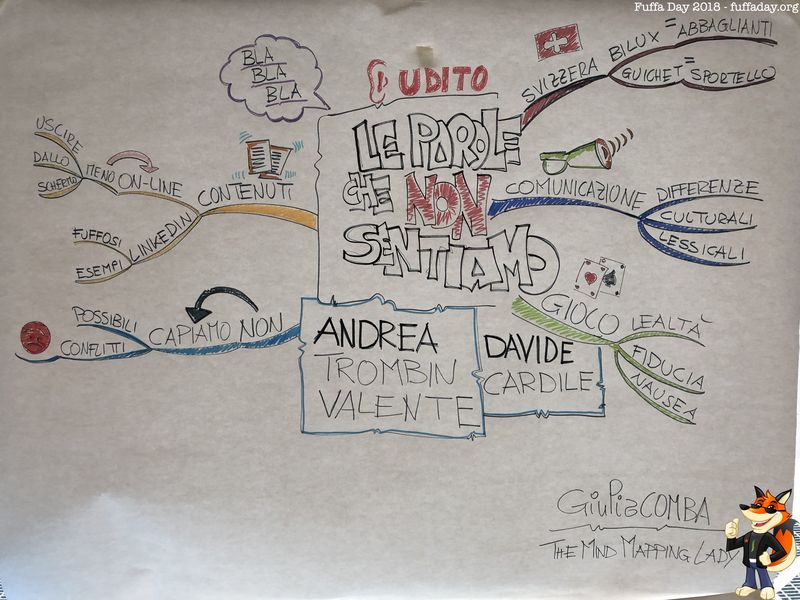 Fuffa Day 2018 - fuffaday.org
BLA
BLA
BLA
UDITO
LE PAROLE
CHE NON
SENTIAMO
SVIZZERA
BILUX = ABBAGLIANTI
GUICHET = SPORTELLO
COMUNICAZIONE
DIFFERENZE
CULTURALI
LESSICALI
GIOCO
LEALTÀ
FIDUCIA
NAUSEA
CONTENUTI
MENO ON-LINE
USCIRE
DALLO
SCHERMO
LINKEDIN
FUFFOSI
ESEMPI
CAPIAMO NON
POSSIBILI
CONFLITTI
ANDREA
TROMBIN
VALENTE
DAVIDE
CARDILE
Giulia COMBA
THE MIND MAPPING LADY